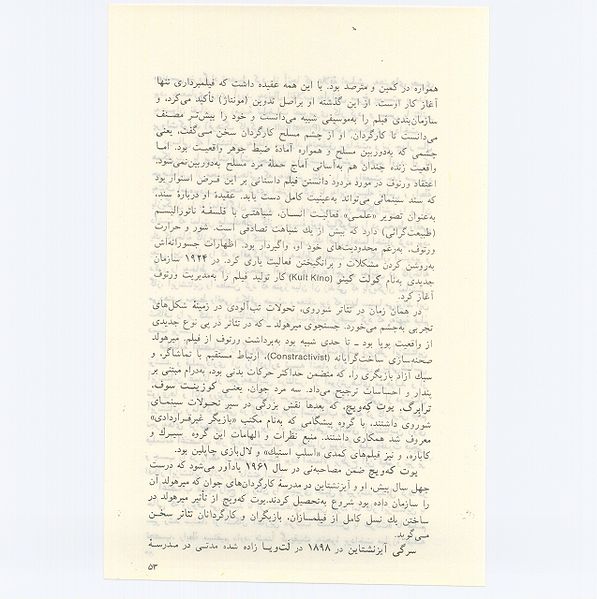 همواره در کمین و مترصد بود. با این همه عقیده داشت که فیلمبرداری تنها
آغاز کار اوست. از این گذشته او براصل تدوین (مونتاژ) تأکید می‌کرد، و
سازمان‌بندی فیلم را به‌موسیقی شبیه می‌دانست و خود را بیش‌تر مصنف
می‌دانست تا کارگردان. او از چشم مسلح کارگردان سخن می‌گفت، یعنی
چشمی که به‌دوربین مسلح و همواره آمادهٔ ضبط جوهر واقعیت بود. اما
واقعیت زنده چندان هم به‌آسانی آماج حملهٔ مرد مسلح به‌دوربین‌نمی‌شود.
اعتقاد ورتوف در مورد مردود دانستن فیلم داستانی بر این فرض استوار بود
که سند سینمائی می‌تواند به‌عینیت کامل دست یابد. عقیدهٔ او دربارهٔ سند،
به‌عنوان تصویر «علمی» فعالیت انسان، شباهتی با فلسفهٔ ناتورالیسم
(طبیعت‌گرائی) دارد که بیش از یك شباهت تصادفی است. شور و حرارت
ورتوف، به‌رغم محدودیت‌های خود او، واگیردار بود. اظهارات جسورانه‌اش
به‌روشن کردن مشکلات و برانگیختن فعالیت یاری کرد. در ۱۹۲۴ سازمان
جدیدی به‌نام کولت کینو (Kult Kino) کار تولید فیلم را به‌مدیریت ورتوف
آغاز کرد.
در همان زمان در تئاتر شوروی، تحولات تب‌آلودی در زمینهٔ شکل‌های
تجربی به‌چشم می‌خورد. جستجوی میرهولد ـ که در تئاتر در پی نوع جدیدی
از واقعیت پویا بود ـ تا حدی شبیه بود به‌برداشت ورتوف از فیلم. میرهولد
صحنه‌سازی ساخت‌گرایانه (Constractivist)، ارتباط مستقیم با تماشاگر، و
سبك آزاد بازیگری را، که متضمن حداکثر حرکات بدنی بود، به‌درام مبتنی بر
پندار و احساسات ترجیح می‌داد. سه مرد جوان، یعنی کوزینت سوف،
ترابرگ، یوت که‌ویچ، که بعدها نقش بزرگی در سیر تحولات سینمای
شوروی داشتند، با گروه پیشگامی که به‌نام مکتب «بازیگر غیرقراردادی»
معروف شد همکاری داشتند. منبع نظرات و الهامات این گروه سیرك و
کاباره، و نیز فیلم‌های کمدی «اسلپ استیك» و لال‌بازی چاپلین بود.
یوت که‌ویچ ضمن مصاحبه‌ئی در سال ۱۹۶۱ یادآور می‌شود که درست
چهل سال پیش، او و آیزنشتاین در مدرسهٔ کارگردان‌های جوان که میرهولد آن
را سازمان داده بود شروع به‌تحصیل کردند.یوت که‌ویچ از تأثیر میرهولد در
ساختن یك نسل کامل از فیلمسازان، بازیگران و کارگردانان تئاتر سخن
می‌گوید.
سرگی آیزنشتاین در ۱۸۹۸ در لت‌ویا زاده شده مدتی در مدرسهٔ
۵۳